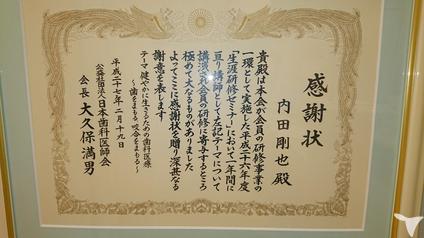 感謝状
内田剛也殿
貴殿は本会が会員の研修事業の
一環として実施した平成二十六年度
「生涯研修セミナー」において一年間に
亘り講師として左記テーマについて
講演され会員の研修に寄与するところ
極めて大なるものがありました
よってここに感謝状を贈り深甚なる
謝意を表します
テーマ 健やかに生きるための歯科医療
～歯をまもる、咬合をまもる～
平成二十七年二月十九日
公益社団法人日本歯科医師会
会長大久保満男